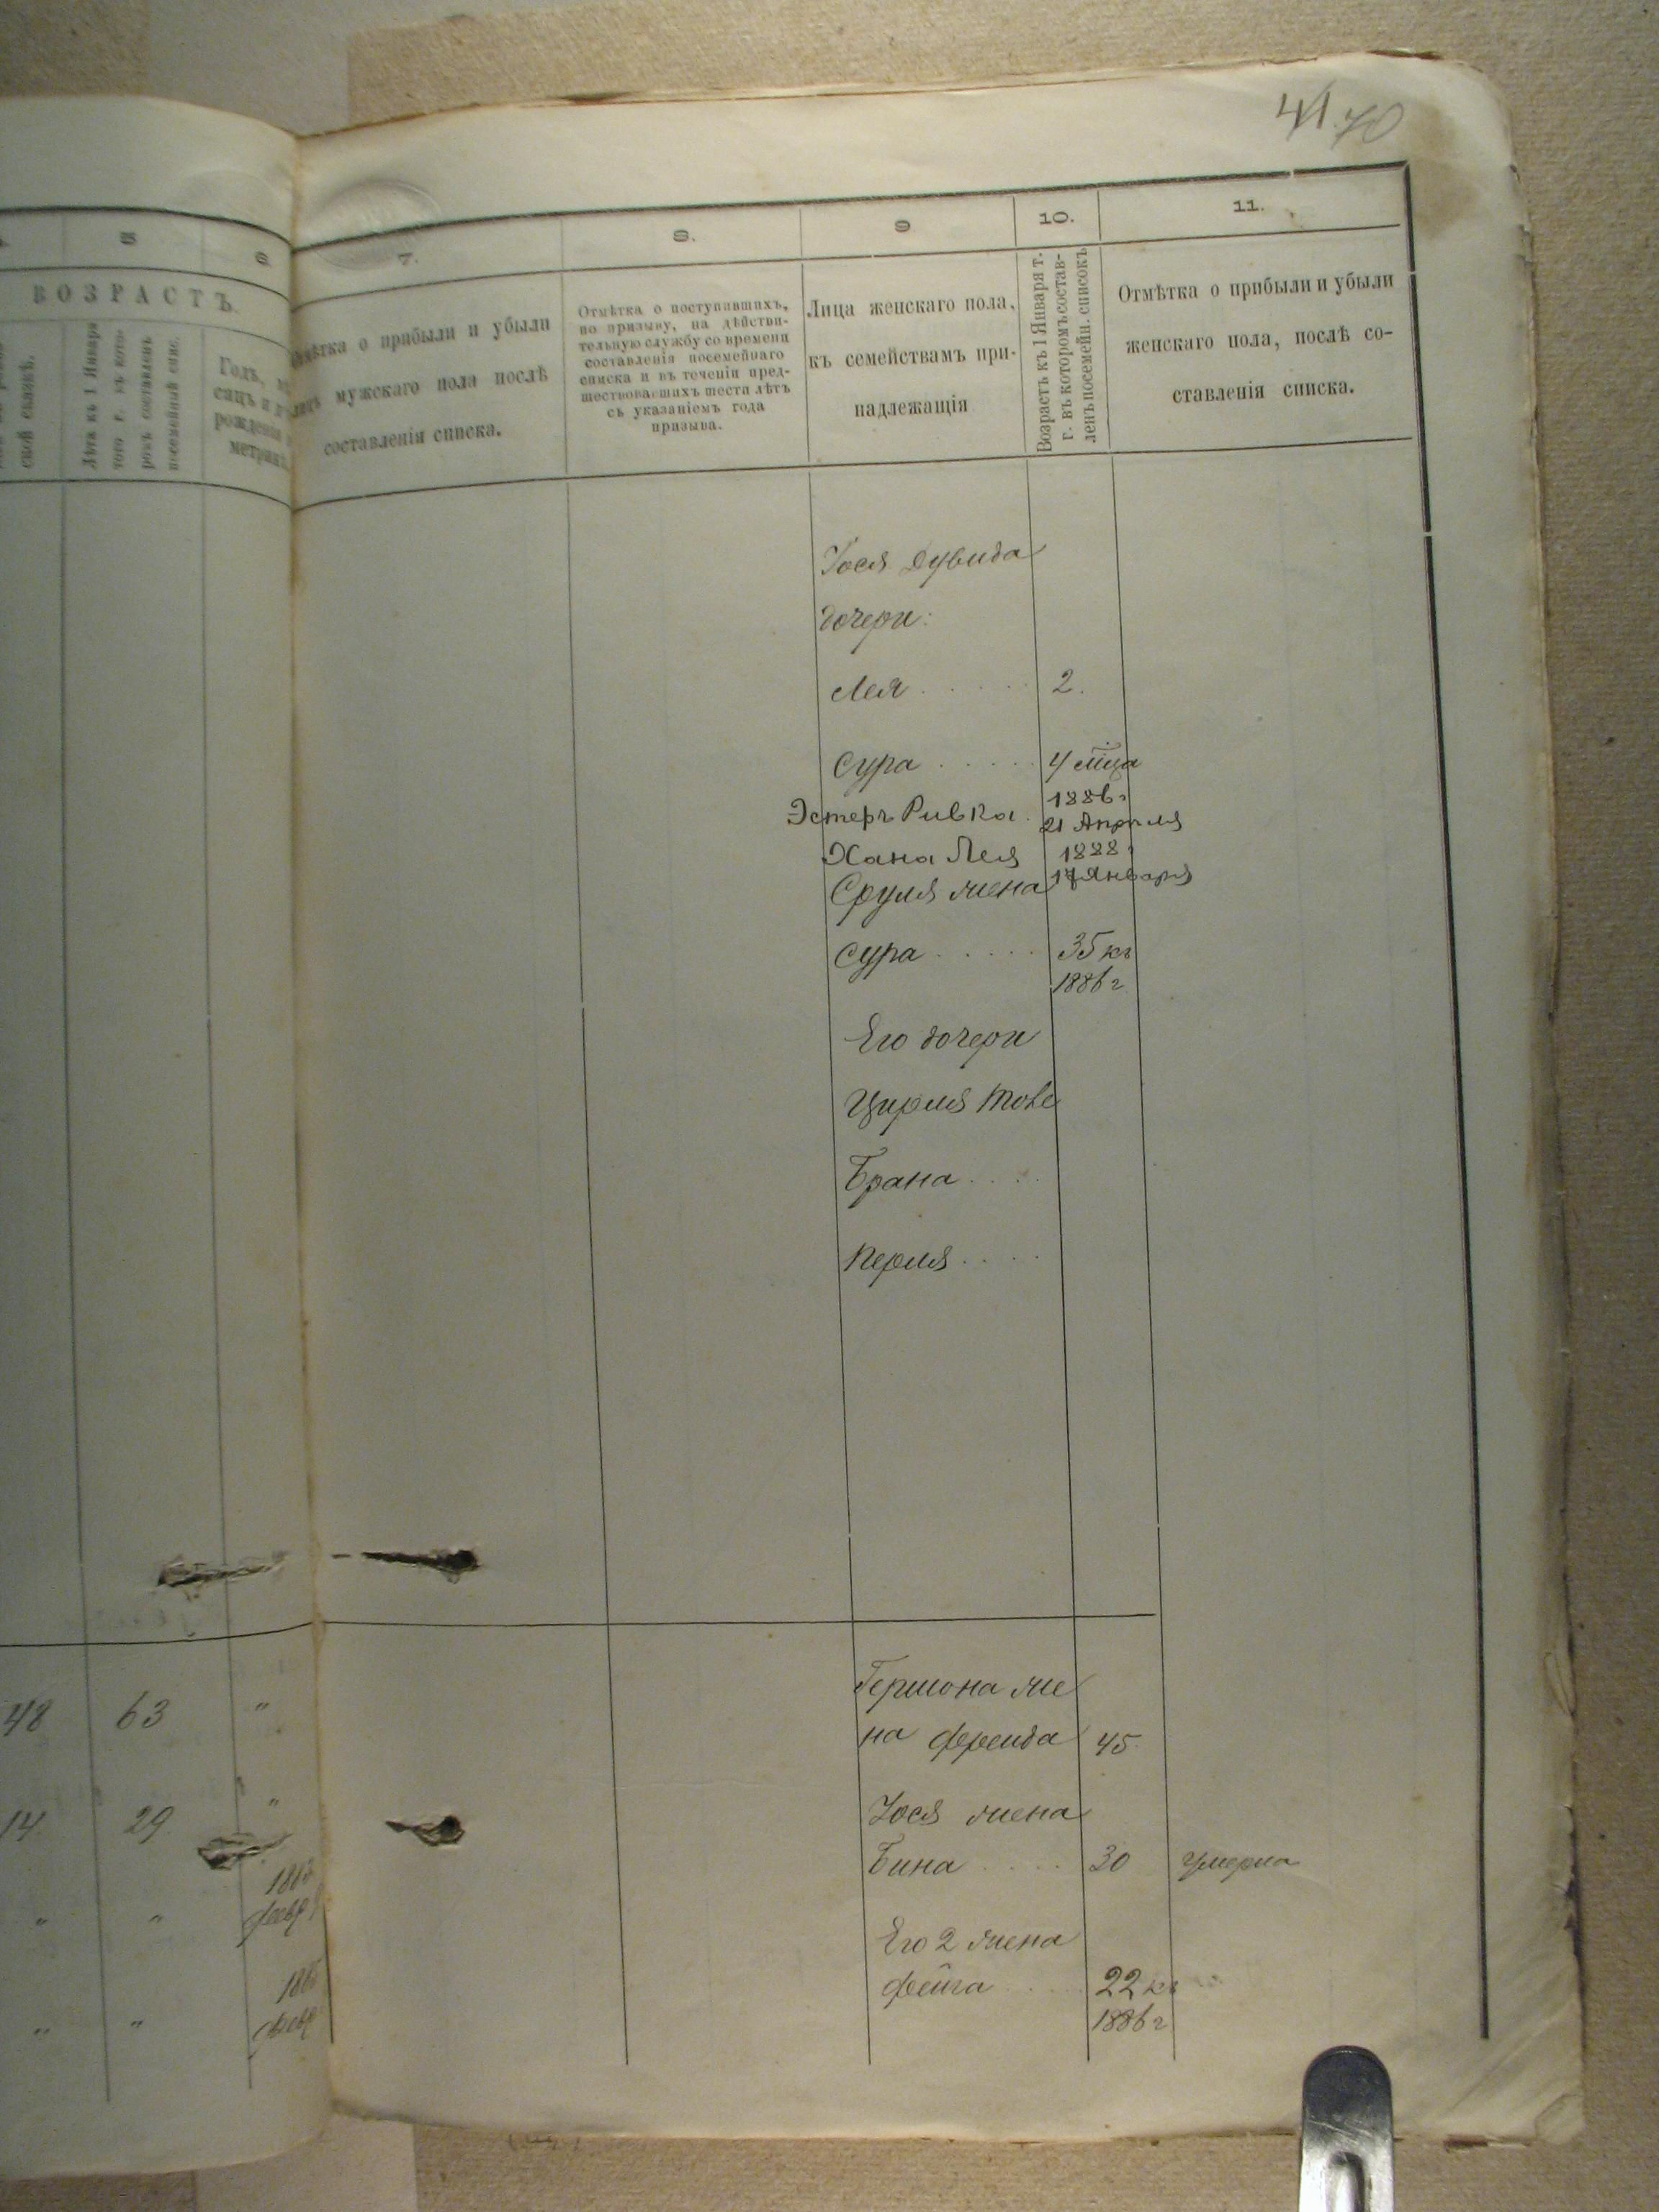 41 70
5
6
7.
8.
9
10.
11.
ВОЗРАСТЪ.
ской сказкѣ.
Лѣта къ 1 Января
того г. въ кото-
ромъ составленъ
посемейный спис.
Годъ,
рожденія
отмѣтка о прибыли и убыли
лицъ мужскаго пола послѣ
составленія списка.
Отмѣтка о поступавшихъ,
по призыву, на дѣйстви-
тельную службу со времени
составленія посемейнаго
списка и въ теченіи пред-
шествовавшихъ шести лѣтъ
съ указаніемъ года
призыва.
Лица женскаго пола,
къ семействамъ при-
надлежащія
Возрастъ къ 1 Января т.
г. въ которомъ состав-
ленъ посемейн. списокъ
Отмѣтка о прибыли и убыли
женскаго пола, послѣ со-
ставленія списка.
Іося Дувида
дочери:
Лея 2.
Сура 4 мца
Эстеръ Ривка 1886 г
21 Апреля
Хана Лея 1888
17 Января
Сруля жена
Сура 35 къ
1886 г
Его дочери
Цирля Тове
Брана
Перля
48 63 "
Гершона же
на Фрейда 45.
14 29 "
Іося жена
Бина 30 Умерла
" "
февр
Его 2 жена
Фейга 22 къ
1886 г
" "
февр